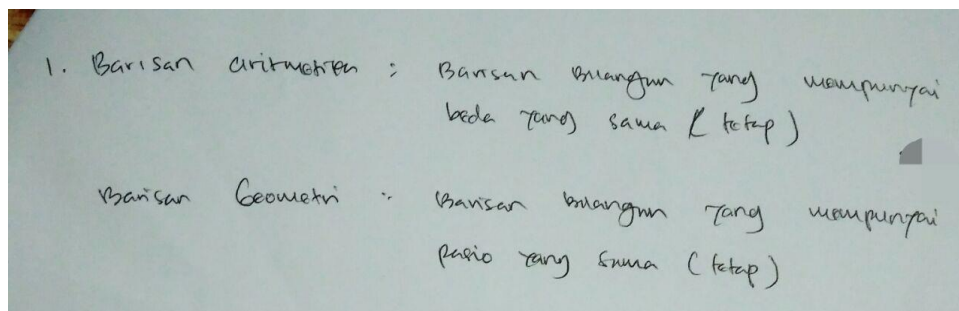 1. Barisan aritmetika : Barisan bilangan yang mempunyai
beda yang sama (tetap)
Barisan Geometri : Barisan bilangan yang mempunyai
rasio yang sama (tetap)